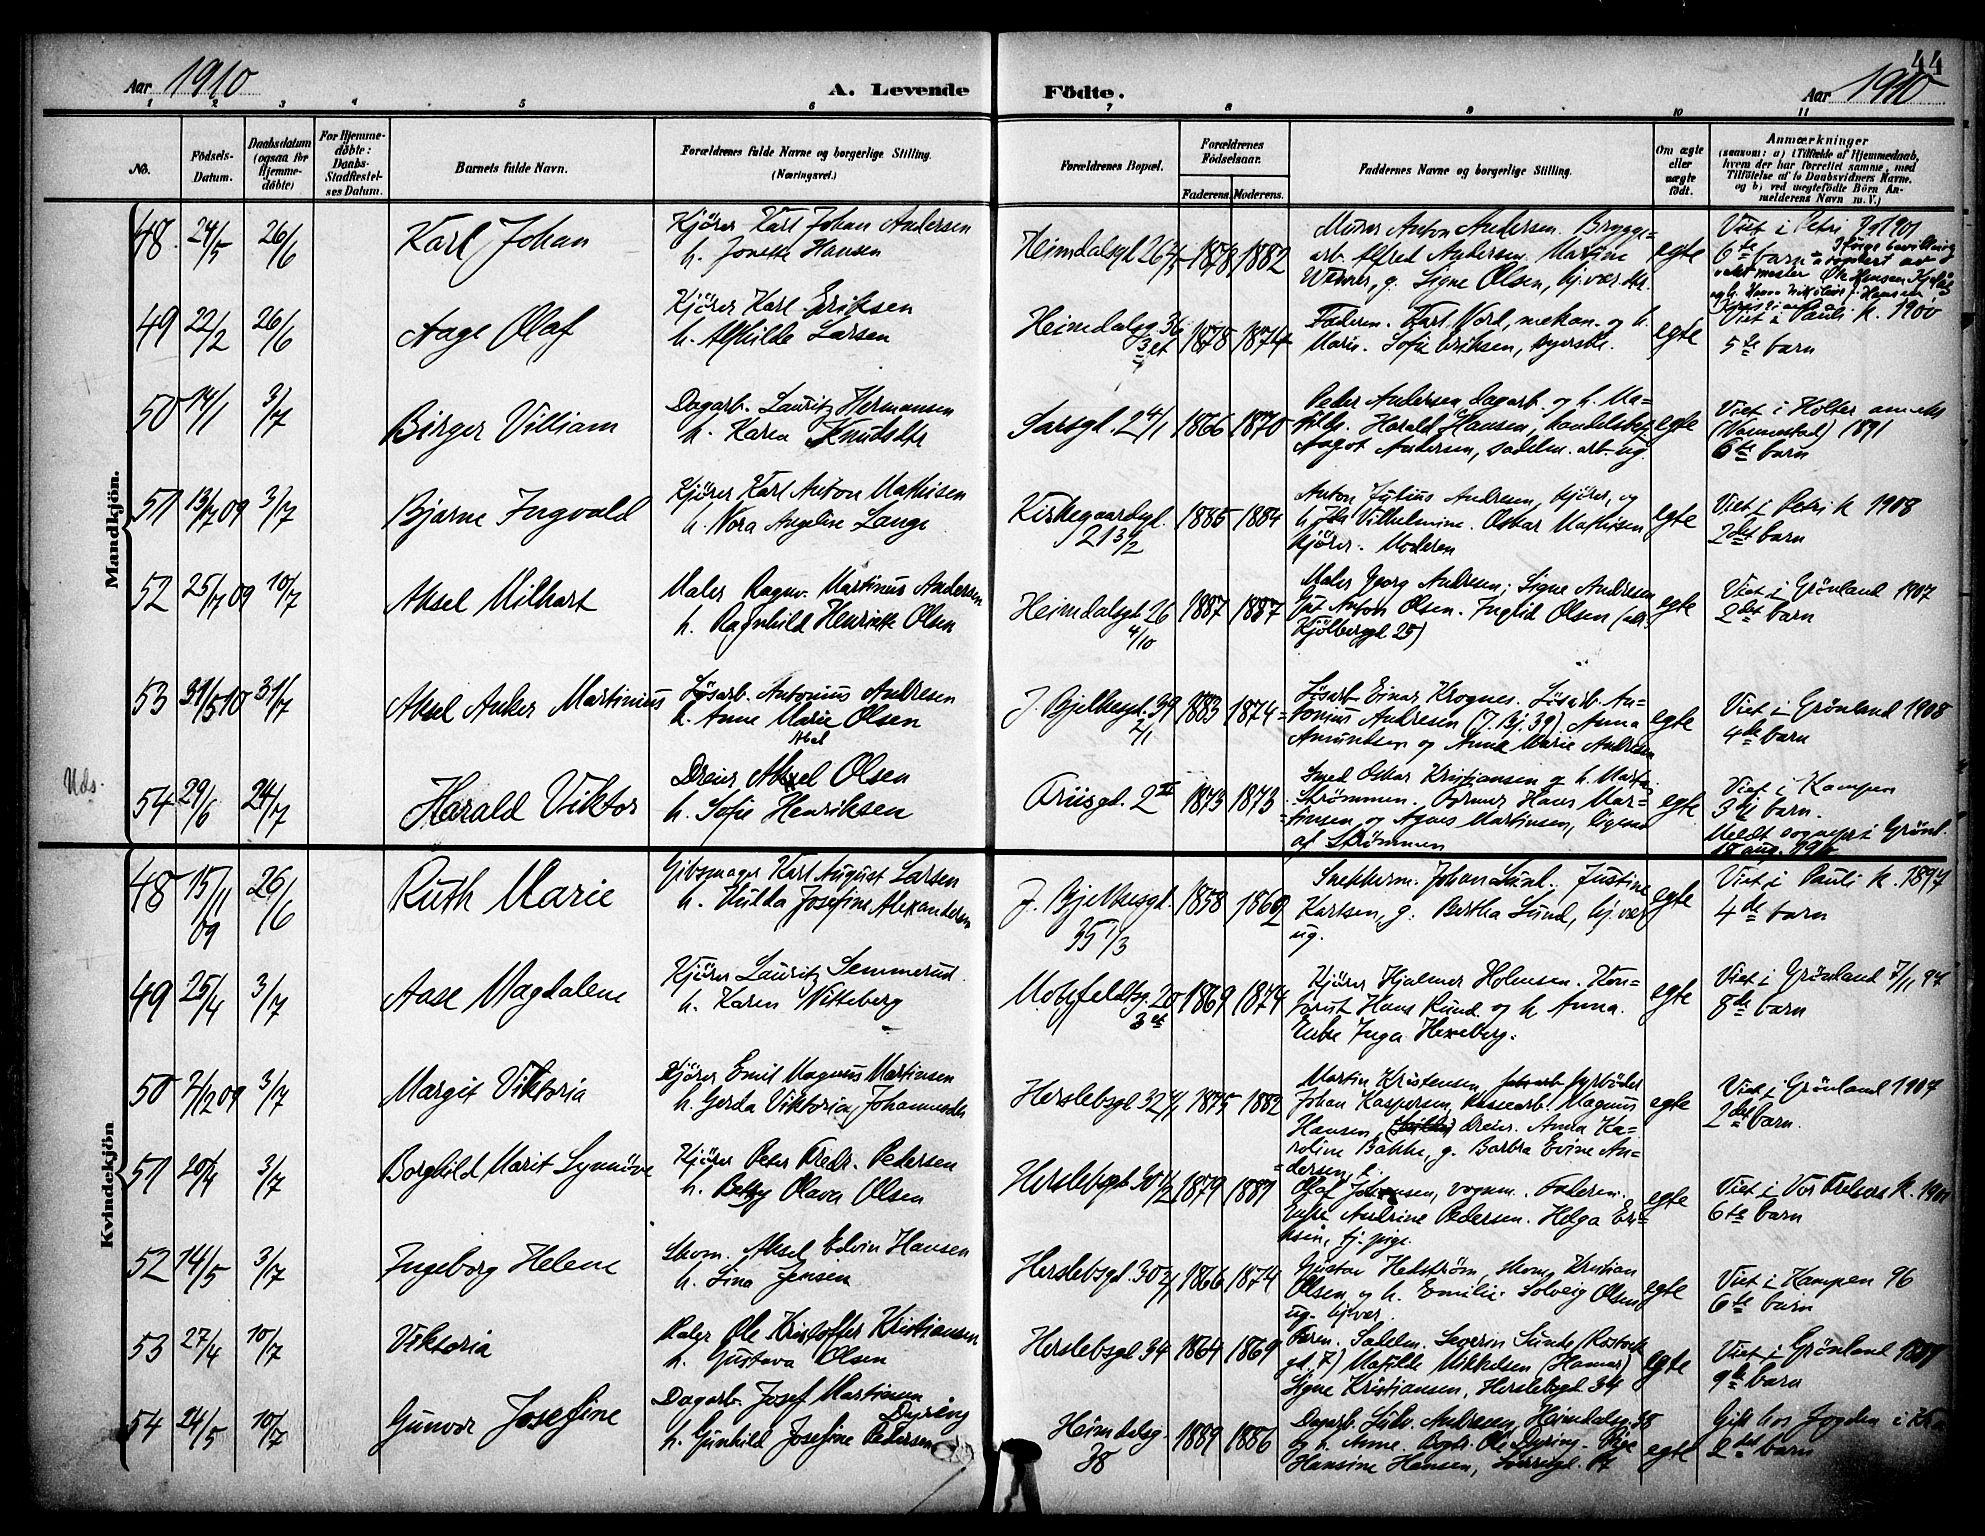 44
Aar 1910
A. Levende
Födte.
Aar 1910
1 2 3 4 5 6 7 8 9 10 11
No.
Födsels-
Datum.
Daabsdatum
(ogsaa for
Hjemme-
döbte)
For Hjemme-
døbte:
Daabs-
Stadfæstel-
ses Datum.
Barnets fulde Navn.
Forældrenes fulde Navne og borgerlige Stilling.
(Næringsvei.)
Forældrenes Bopæl.
Forældrenes
Födselsaar.
Faderens. Moderens.
Faddernes Navne og borgerlige Stilling.
Om ægte
eller
uægte
födt.
Anmærkninger
(saasom: a) i Tilfælde af Hjemmedaab,
hvem der har forrettet samme, med
Tilföielse af to Daabsvidners Navne.
og b) ved uegtefödte Börn An-
melderens Navn m. V.)
Mandkjön.
48. 24/5 26/6
Karl Johan
Kjører Karl Johan Andersen
h. Jonette Hansen
Heimdalsgd. 26 4/5
1878 1882
Murer Anton Andersen. Brygge-
arb. Alfred Andersen. Martine
Werner, g. Signe Olsen,
egte
Viet i Petri 1901
6te barn
49 22/2 26/6
Aage Olaf
Kjører Karl Eriksen
h. Alfhilde Larsen
Heimdalsg. 36
3 et
1878 1874
Faderen. Karl Nord, mekan. og h.
Marie. Sofie Eriksen, syerske.
egte
Viet i Pauli k. 1900
5te barn
50 14/1 3/7
Birger Villiam
Dagarb. Lauritz Hermansen
h. Karen Knudsdtr
Sarsgd. 2 4/1
1866 1870
Peder Andersen dagarb. og h. Ma-
thilde. Harald Hansen, handelsbef.
Aagot Andersen, sadelm. arb. ug.
egte
Viet i Holter anneks
(Nannestad) 1891
6te barn
51 13/7 09 3/7
Bjarne Ingvald
Kjører Karl Anton Mathisen
h. Nora Angeline Lange
Kirkegaardsgd.
21 3/2
1885 1884
Anton Julius Andresen, kjører, og
h. Ida Vilhelmine. Oskar Mathisen
Kjører. Moderen
egte
Viet i Petri k 1908
2det barn
52 25/7 09 10/7
Aksel Milhart
Maler Ragnv. Martinus Andersen
h. Ragnhild Henriette Olsen
Heimdalsgd. 26
4/10
1887 1887
Maler Georg Andresen; Signe Andresen
Gut Anton Olsen. Ingrid Olsen (alle
Kjølberggd. 25)
egte
Viet i Grönland 1907
2det barn
53 31/5 10 31/7
Aksel Anker Martinius
Løsarb. Antonius Andresen
h. Anne Marie Olsen
J. Bjelkesgd. 39
2/1
1883 1874
Løsarb Einar Krognes. Løsarb. An-
tonius Andresen (J. Bj. 39) Anna
Amundsen og Anna Marie Andresen
egte
Viet i Grönland 1908
4de barn
Uds.
54 29/6 24/7
Harald Viktor
Abel
Dreier Aksel Olsen
h. Sofie Henriksen
Friisgd. 2 II
1873 1873
Smed Oskar Kristjansen og h. Marta
Strömmen. Former Hans Mar-
tinsen og Agnes Martinsen, ligesaa
af Strömmen
egte
Viet i Kampen
3die barn.
Meldt sognepr i Grönl.
18 aug. 1910
Kvindekjön
48 15/11 09 26/6
Ruth Marie
Gibsmager Karl August Larsen
h. Hulda Josefine Alexandersen
J. Bjelkesgd.
35 1/3
1858 1862
Snekkerm. Johan Lund. Justine
Karlsen, g. Bertha Lund, hj. vær.
ug.
egte
Viet i Pauli k. 1897
4de barn
49 25/4 3/7
Aase Magdalene
Kjører Lauritz Semmerud.
h. Karen Witteberg
Motzfeldtsg. 20
3 et
1869 1874
Kjører Hjalmar Holmsen. Kon-
torist Hans Rund og h Anna.
Enke Inga Hexeberg.
egte
Viet i Grönland 7/1 94
8de barn
50 7/12 09 3/7
Margit Viktoria
Kjører Emil Magnus Martinsen
h. Gerda Viktoria Johannesdtr
Herslebsgd 32 4/1
1875 1882
Martin Kristensen, fyrbøder
Johan Kaspersen, Magnus
Hansen, dreier. Anna Ka-
roline Bakke, g. Barbra Evine An-
dersen, e.
egte
Viet i Grönland 1907
2det barn.
51 20/4 3/7
Borghild Marit Synnöve
Kjører Peter Fredr. Pedersen
h. Betzy Olava Olsen
Herslebsgd 30 4/2
1879 1881
Olaf Johansen, vognm. Faderen.
Enke Andrine Pedersen. Helga Erik-
sen, tj. pige.
egte
Viet i Vor Frelsers k. 1901
6te barn
52 14/5 3/7
Ingeborg Helene
Skom. Aksel Edvin Hansen
h. Lina Jensen
Herslebsgd. 30 4/1
1866 1874
Gustav Hedström, skom, Kristian
Olsen og h. Emilie. Solveig Olsen,
ug. hj. vær.
egte
Viet i Kampen 96
6te barn
53 27/4 10/7
Viktoria
Maler Ole Kristoffer Kristiansen
h. Gustava Olsen
Herslebsgd 34
1864 1869
Foren. Saddelm. Severin Sunde (Rostock
gd. 7) Matilde Mikkelsen (Hamar)
Signe Kristiansen, Herslebsgd 34
egte
Viet i Grönland
9de barn
54 24/5 10/7
Gunvor Josefine
Dagarb. Josef Martinsen
Dyring
h. Gunhild Josefine Pedersen
Heimdalsg.
38
1889 1886
Dagarb. Andresen, Heimdalsg. 38
og h. Anne. Ole Dyring. Pige
Hansine Hansen, Sverresgd. 17
egte
Gift hos fogden i
2det barn